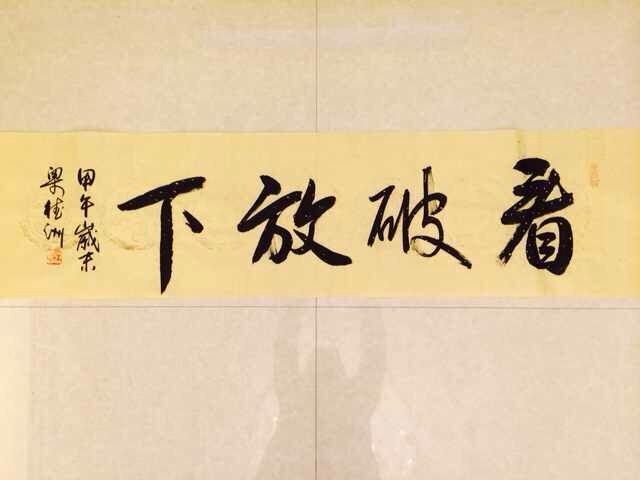 看破放下
甲午歲末
梁桂洲